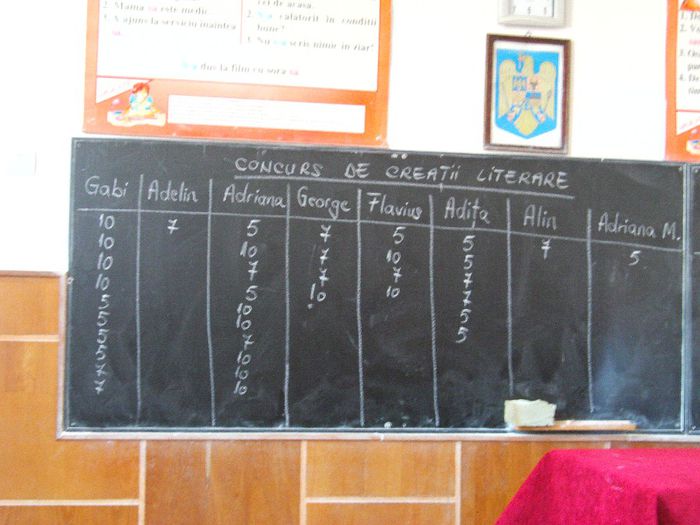 2. Mama sa este medic.
3. A ajuns la serviciu înaintea
sa.
cei de acasă.
călătorit în condiții
bune?
3. Nu scris nimic în ziar?
S-a dus la film cu sora sa.
CONCURS DE CREAȚII LITERARE
Gabi Adelin Adriana George Flavius Adița Alin Adriana M.
10 7 5 7 5 5 7 5
10 10 7 10 5
10 7 7 7 7
10 5 10 10 7
5 10 5
5 10 5
5 7
5 10
7 10
7 10